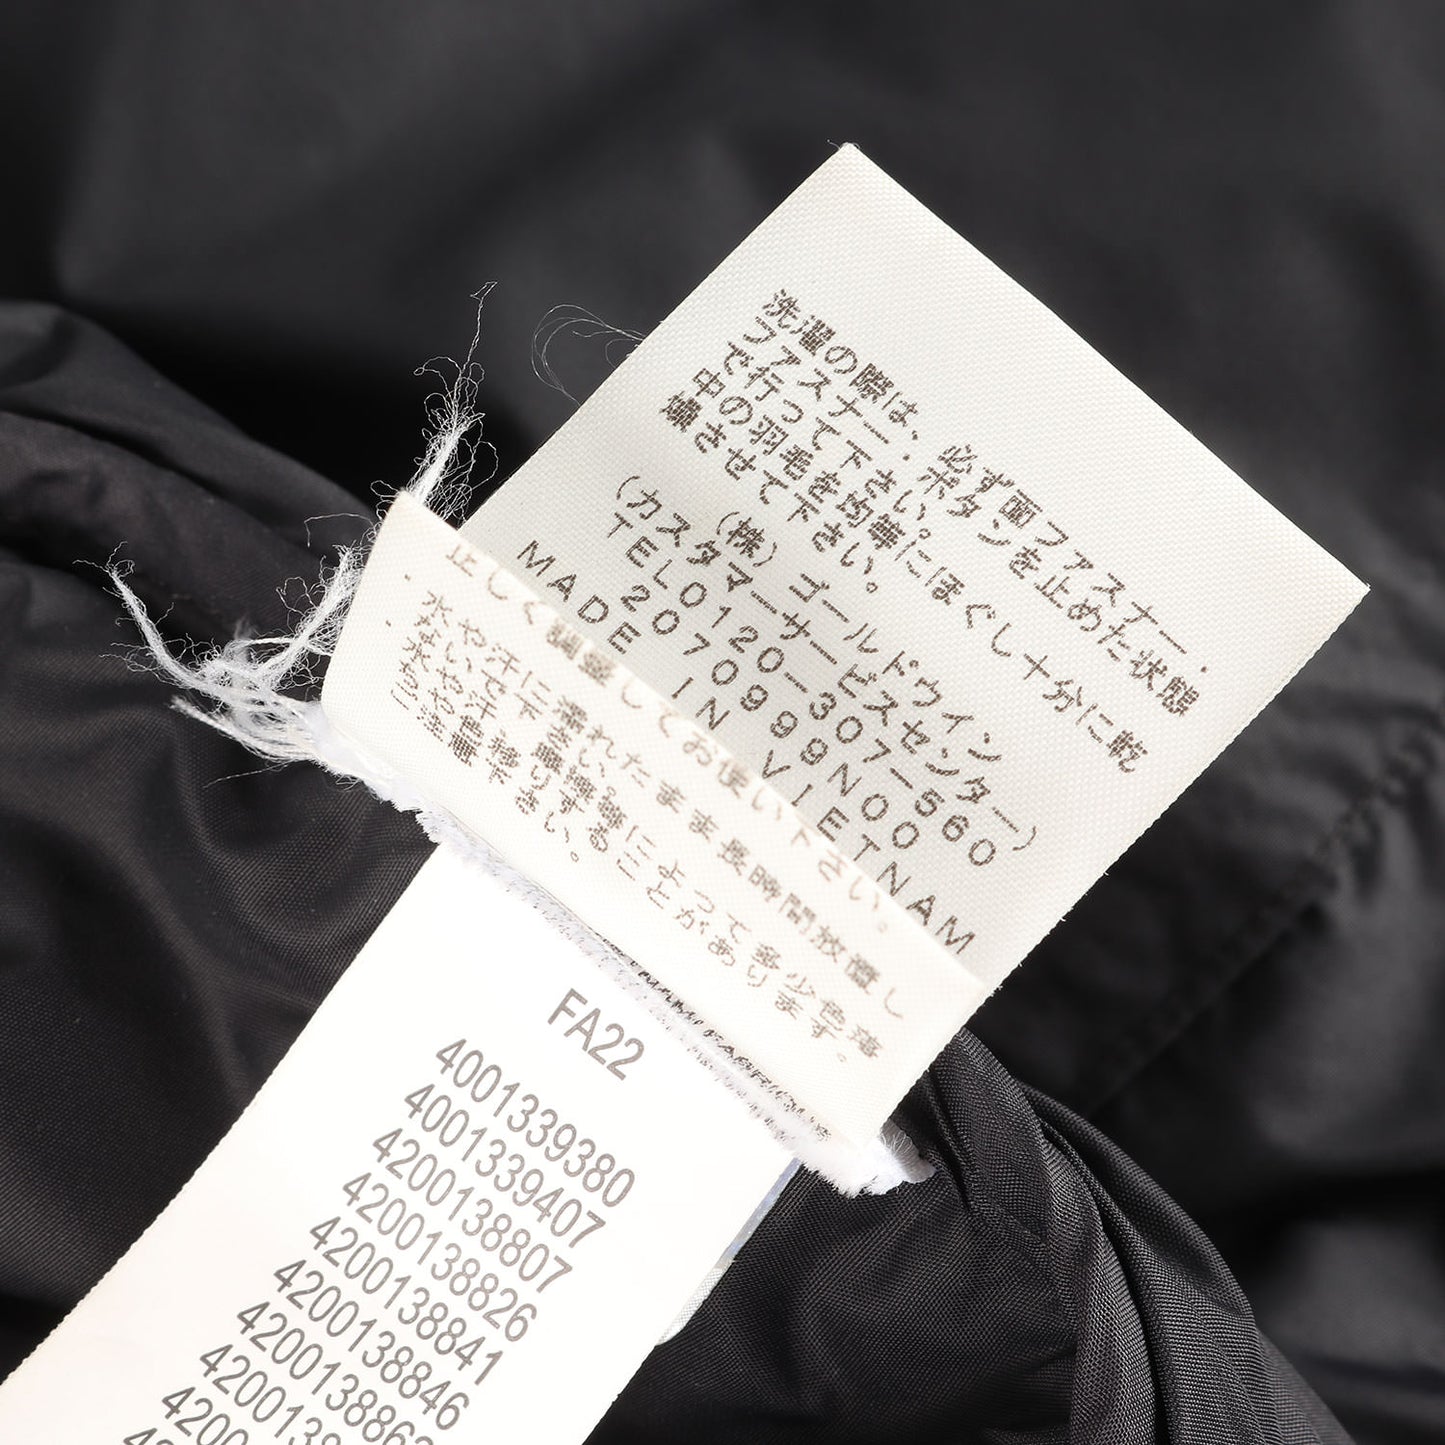 洗濯の際は、必ず面ファスナー.
ファスナー.ボタンを止めた状態
で行って下さい。
中の羽毛を均等にほぐし十分に乾
燥させて下さい。
(株)ゴールドウイン
(カスタマーサービスセンター)
TEL0120-307-560
2070999N00
MADE IN VIETNAM
正しく調整してお使い下さい。
水や汗に濡れたまま長時間放置し
ないで下さい。
水や汗、摩擦等によって多少色落
色移りすることがあります。
ご注意下さい。
FA22
4001339380
4001339407
4200138807
4200138826
4200138841
4200138846